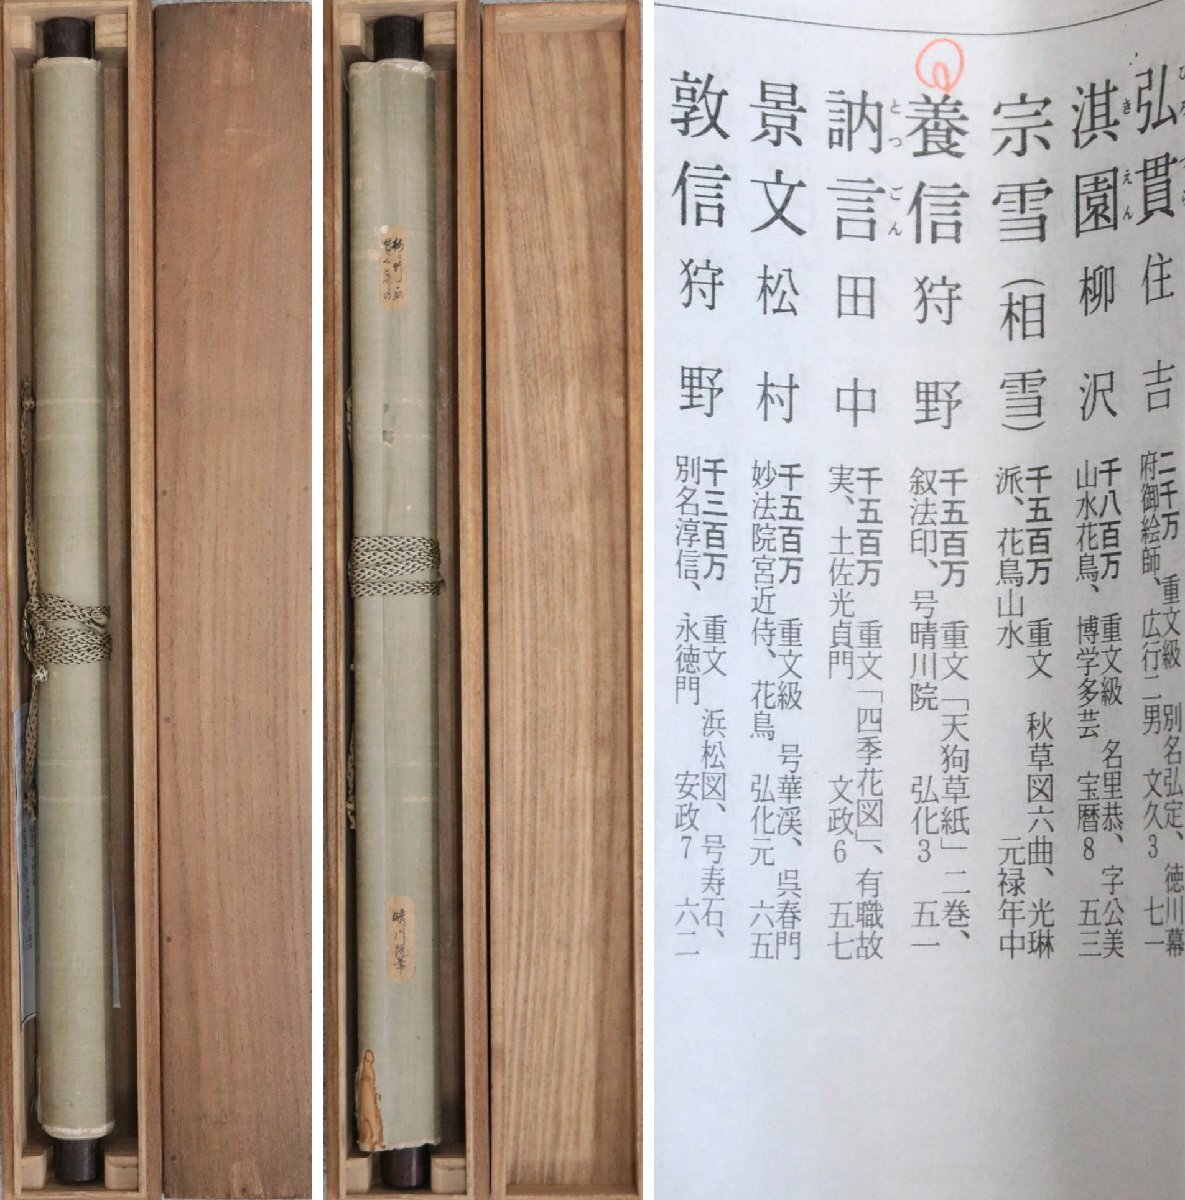 晴川院筆
弘貫 住吉
ひろつら
二千万 重文級 別名弘定、徳川幕
府御絵師、広行二男 文久3 七一
淇園 柳沢
きえん
千八百万 重文級 名里恭、字公美
山水花鳥、博学多芸 宝暦8 五三
宗雪(相雪)
千五百万 重文 秋草図六曲、光琳
派、花鳥山水 元禄年中
養信 狩野
千五百万 重文「天狗草紙」二巻、
叙法印、号晴川院 弘化3 五一
訥言 田中
とつごん
千五百万 重文「四季花図」、有職故
実、土佐光貞門 文政6 五七
景文 松村
千五百万 重文級 号華渓、呉春門
妙法院宮近侍、花鳥 弘化元 六五
敦信 狩野
千三百万 重文 浜松図、号寿石、
別名淳信、永徳門 安政7 六二